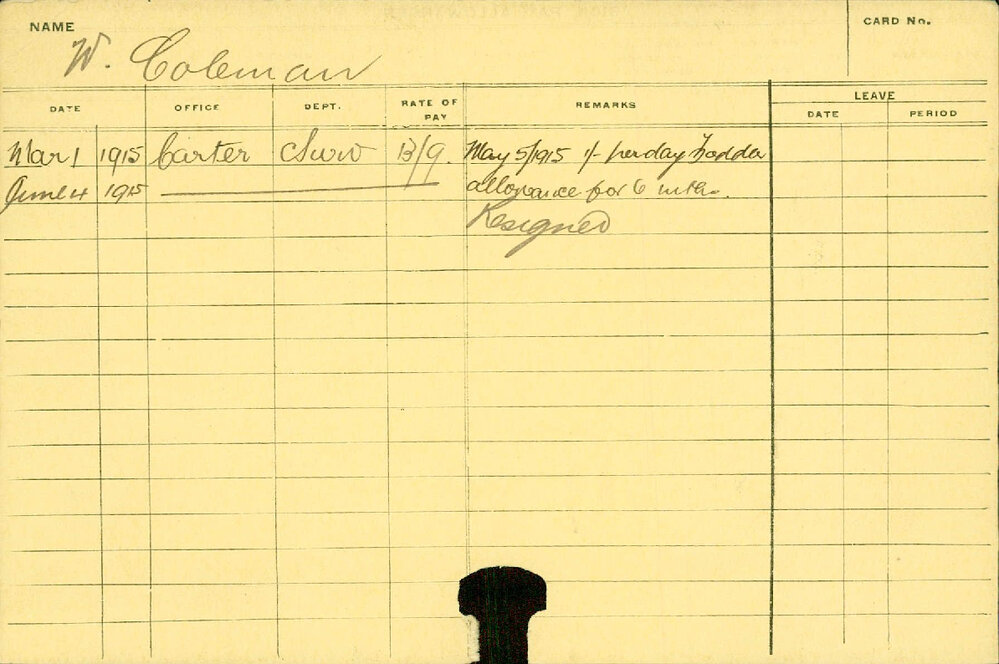 NAME
CARD No.
W. Coleman
DATE OFFICE DEPT. RATE OF PAY REMARKS LEAVE
DATE PERIOD
Mar 1 1915 Carter 13/9. May 5/1915 1/- per day Fodder
June 4 1915 allowance for 6 mths.
Resigned